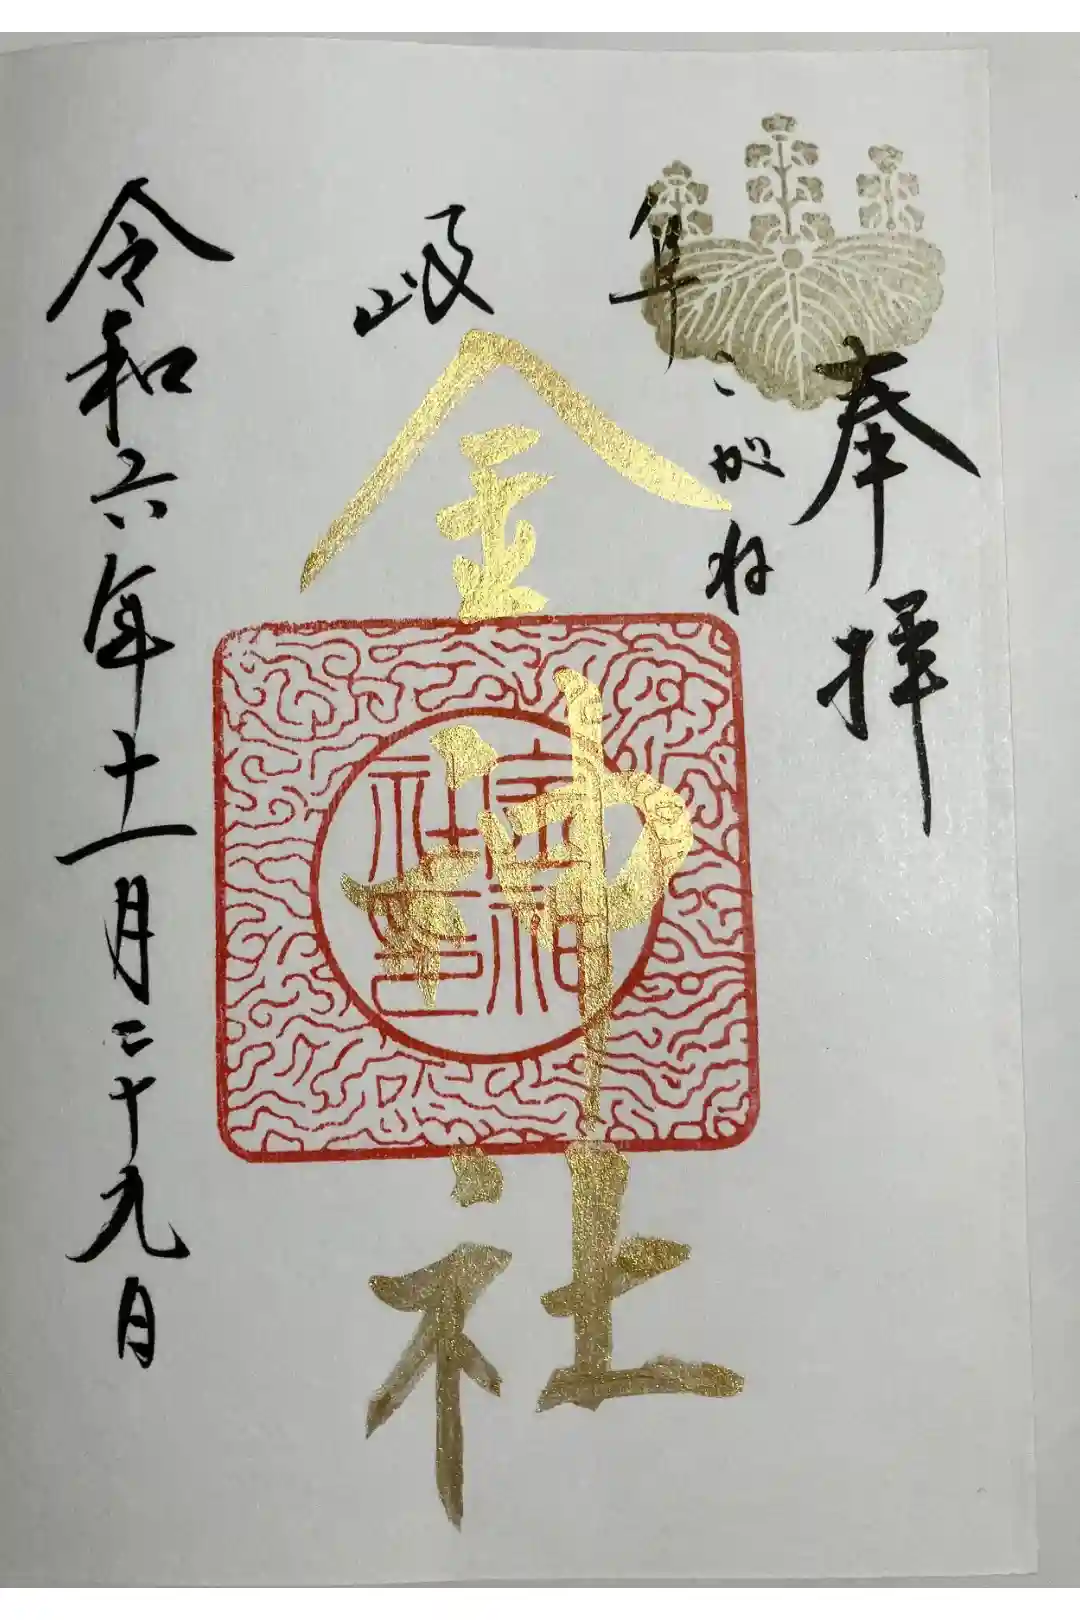 奉拝
阜
こがね
岐
金神社
令和六年十一月二十九日